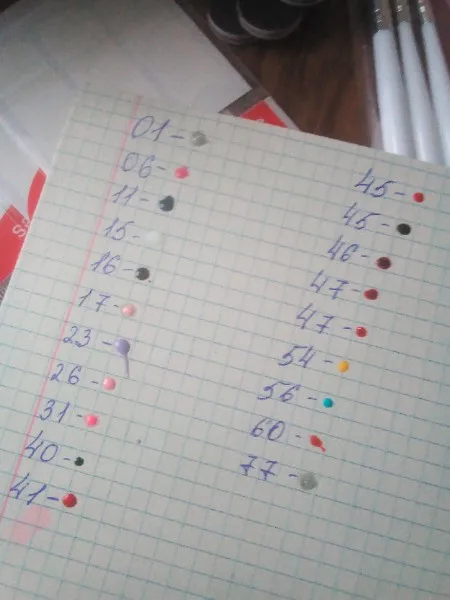 01-
06-
11-
15-
16-
17-
23-
26-
31-
40-
41-
45-
45-
46-
47-
47-
54-
56-
60-
77-